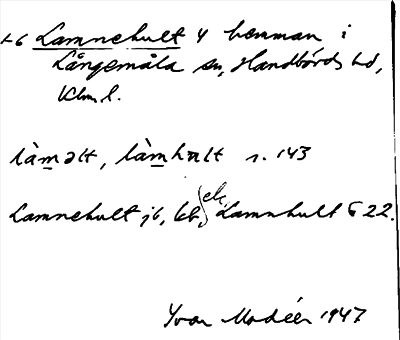 Lamnehult 4 hemman i
Långemåla sn, Handbörds hd,
Klm l.
làmǝlt, làmhult s. 143
Lamnehult jb, kb, ek, Lamnhult G 22.
Yvar Modéer 1947